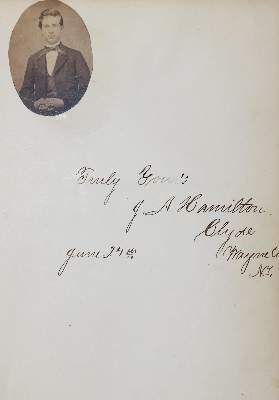 Truly Yours
J A Hamilton
Clyde
June 24th Wayne Co
N.Y.